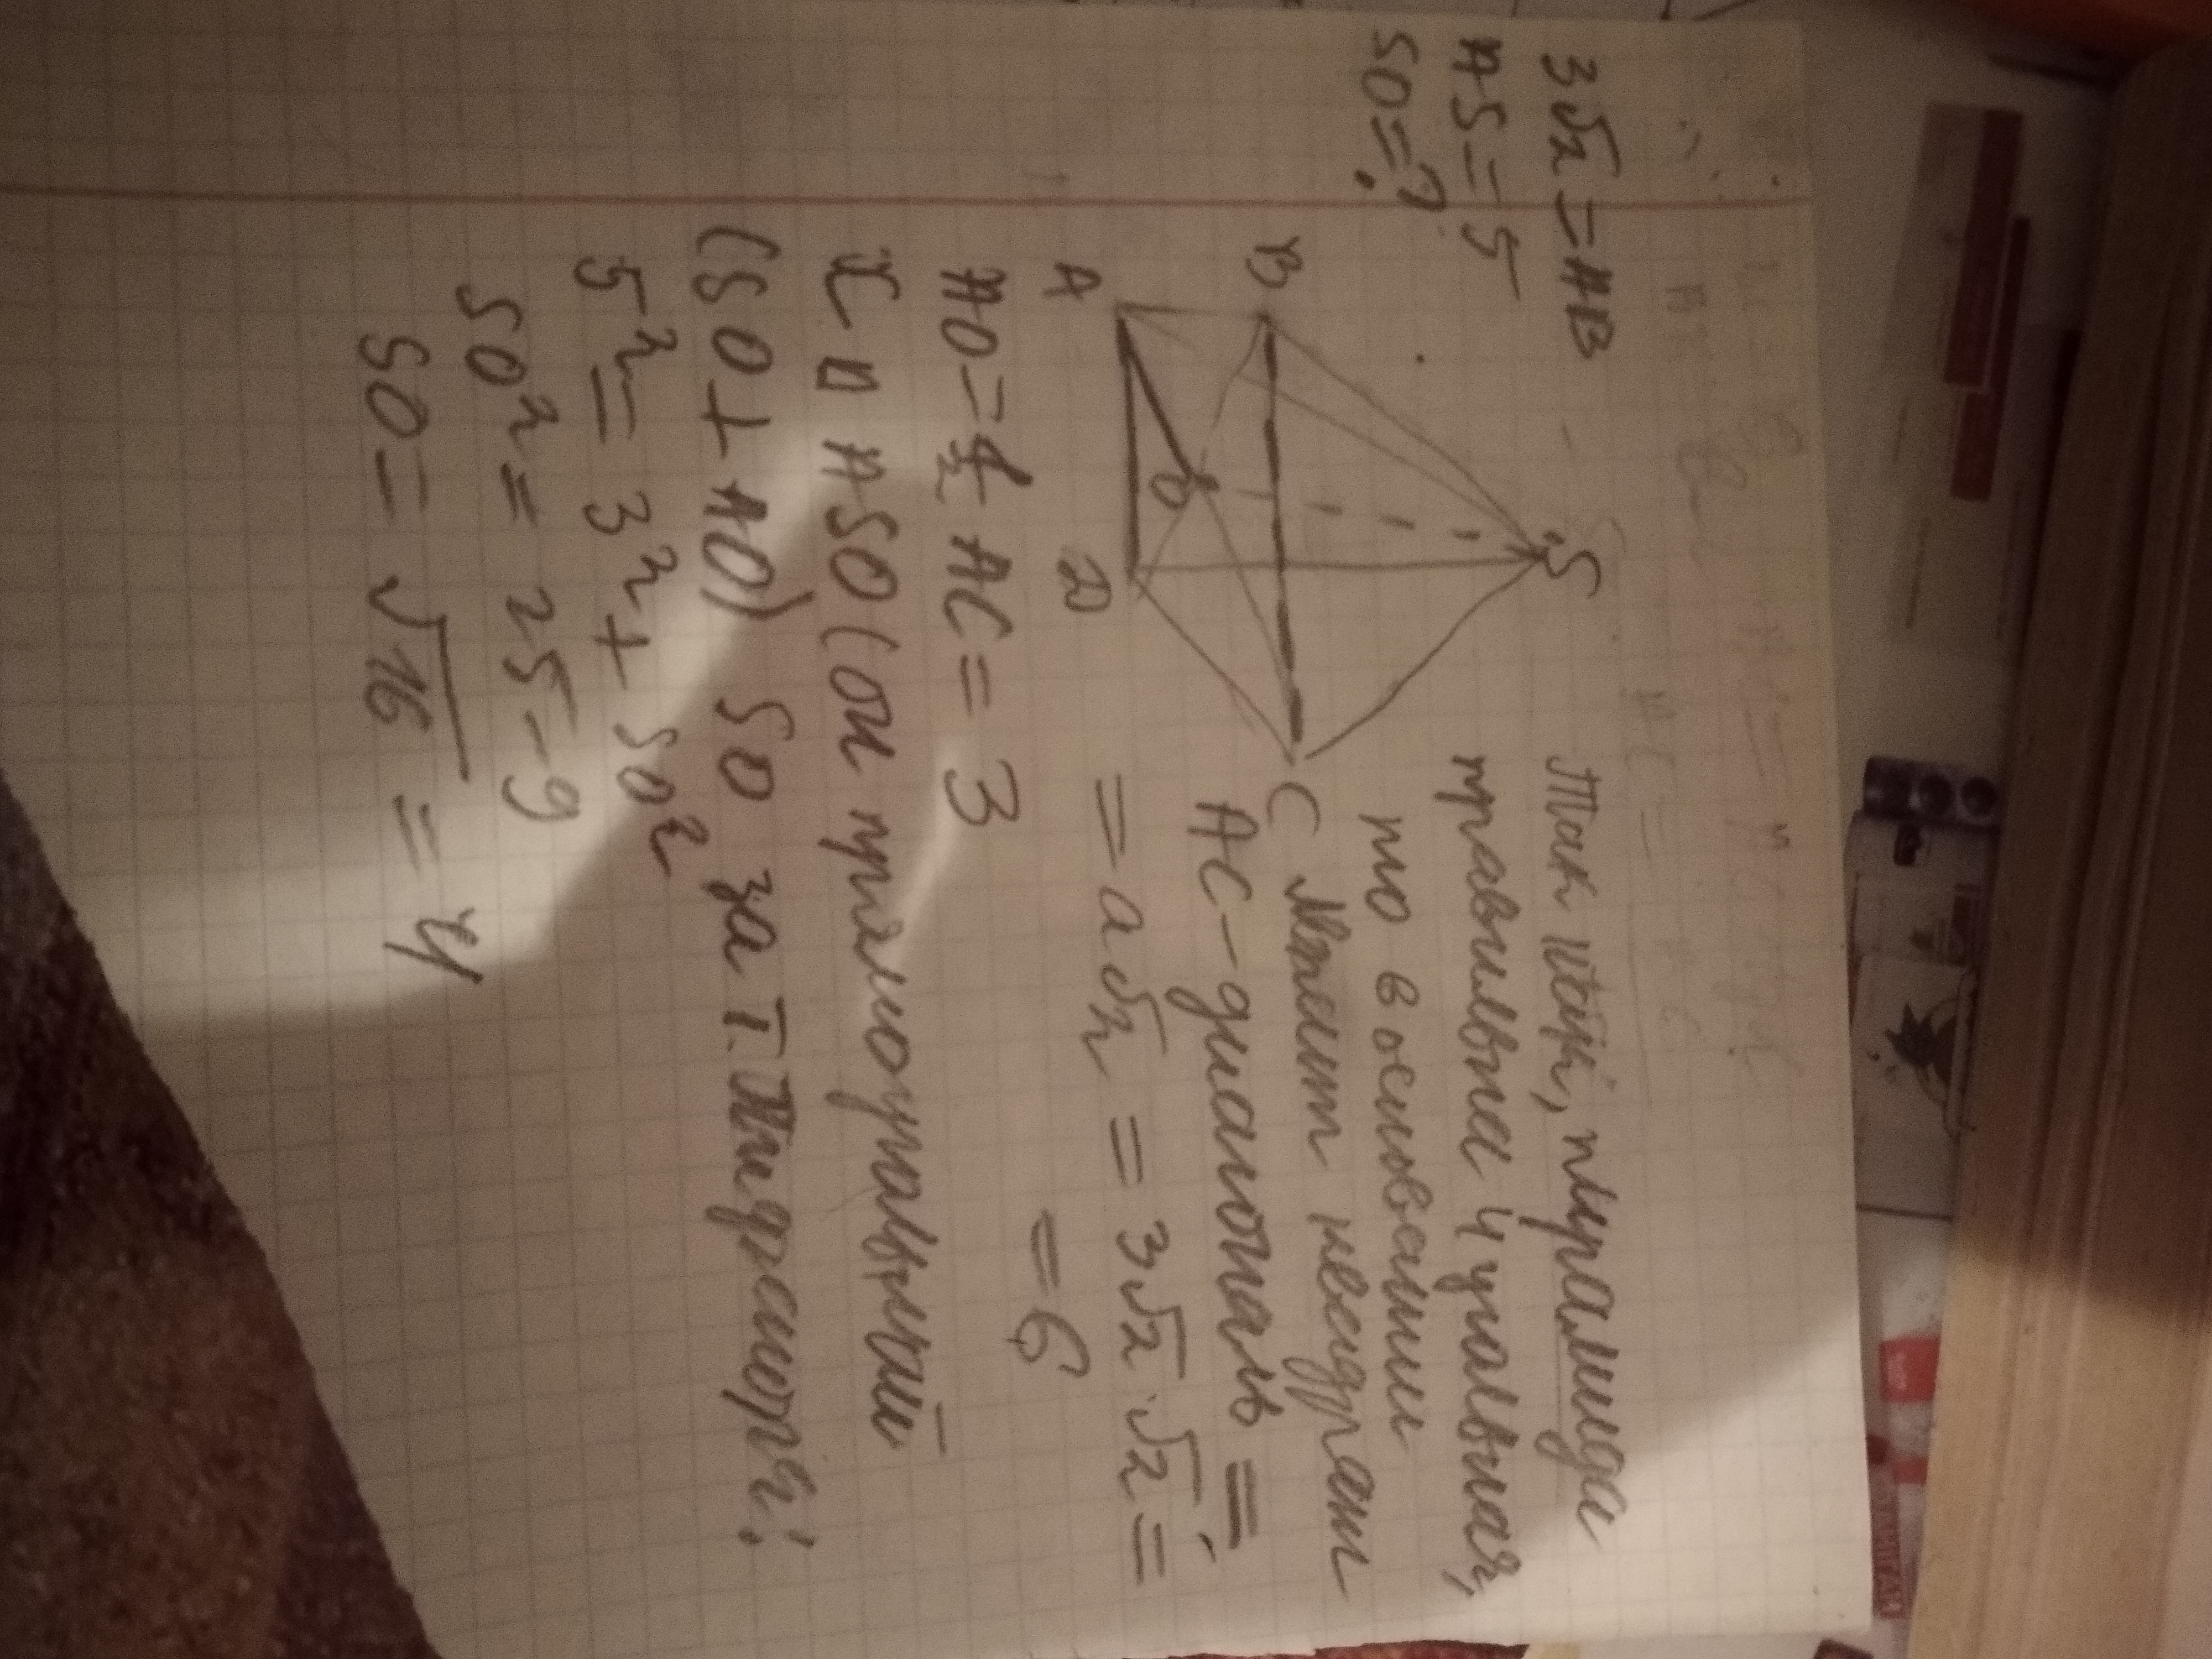 3√2 = AB
AS = 5
SO = ?
S
B
A
O
D
C
Так как, пирамида
правильная 4 угольная,
то в основании
лежит квадрат
AC - диагональ =
= a√2 = 3√2 · √2 =
= 6
AO = ½ AC = 3
Із ∆ ASO (он прямоугольный
(SO ⊥ AO) SO за т. Пифагора:
5² = 3² + SO²
SO² = 25 - 9
SO = √16 = 4